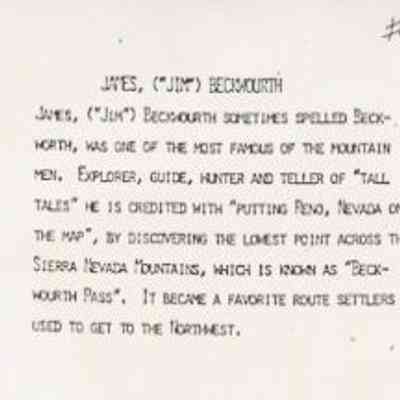 #
JAMES, ("JIM") BECKWOURTH
JAMES, ("JIM") BECKWOURTH SOMETIMES SPELLED BECK-
WORTH, WAS ONE OF THE MOST FAMOUS OF THE MOUNTAIN
MEN. EXPLORER, GUIDE, HUNTER AND TELLER OF "TALL
TALES" HE IS CREDITED WITH "PUTTING RENO, NEVADA ON
THE MAP", BY DISCOVERING THE LOWEST POINT ACROSS TH
SIERRA NEVADA MOUNTAINS, WHICH IS KNOWN AS "BECK-
WOURTH PASS". IT BECAME A FAVORITE ROUTE SETTLERS
USED TO GET TO THE NORTHWEST.